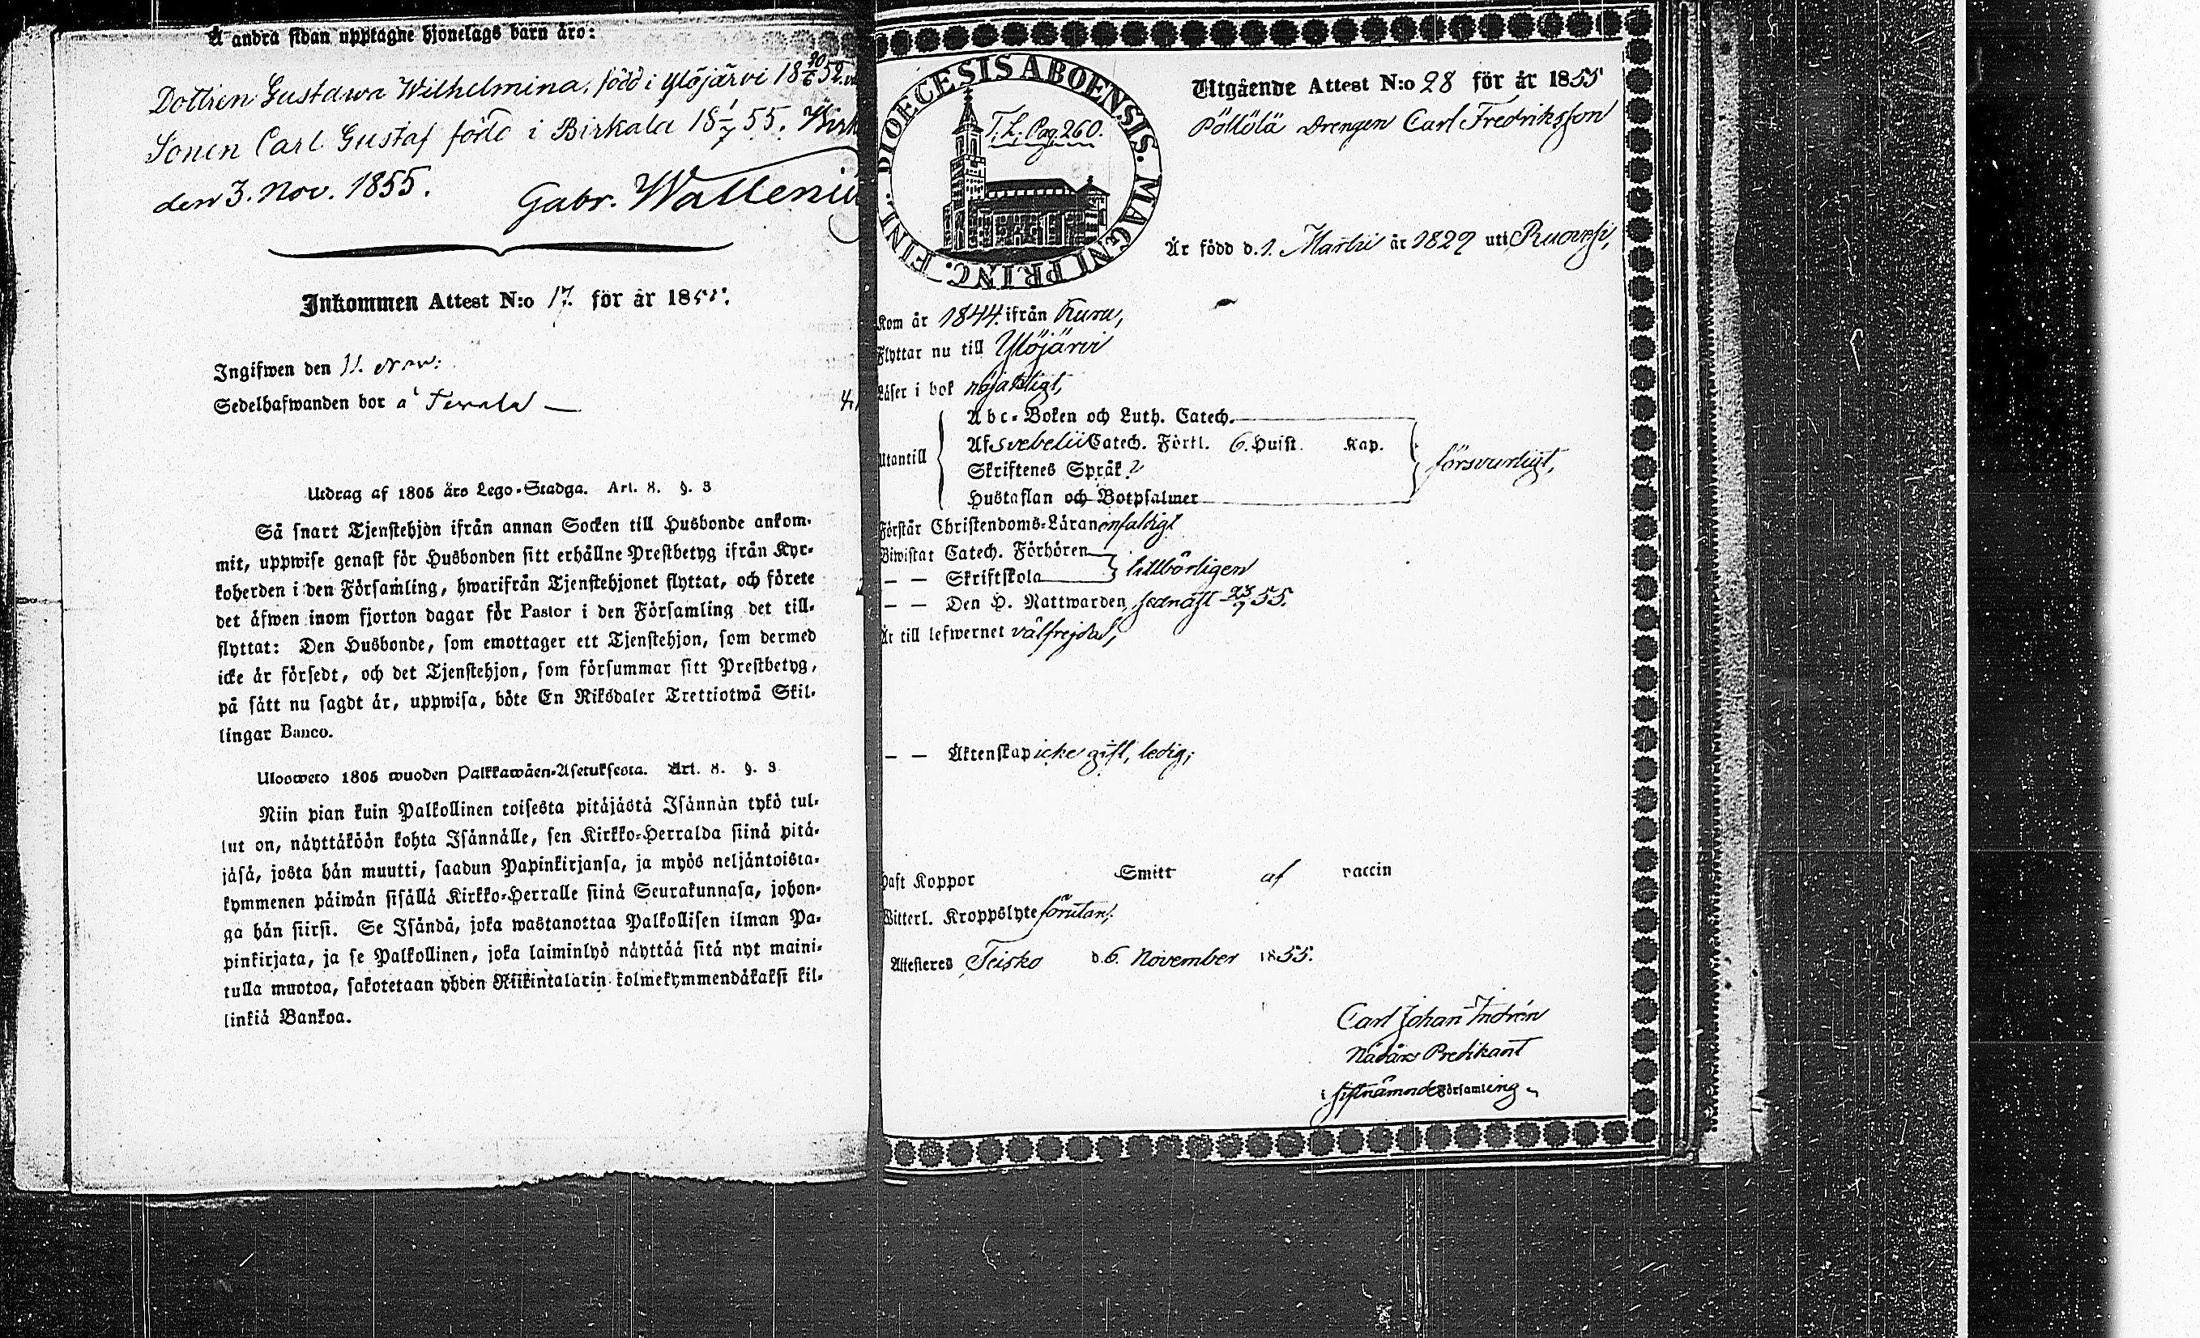 Å andra sidan upptagne hjonelags barn äro:
Dottren Gustawa Wilhelmina, född i Ylöjärvi 18 /6 52.
Sonen Carl Gustaf född i Birkala 18 1/7 55. Birk
den 3. Nov. 1855. Gabr. Walleniu
Inkommen Attest N:o 17. för år 1855.
Ingifwen den 11. Nov:
Sedelhafwanden bor å
Utdrag af 1805 års Lego-Stadga. Art. 8. §. 3
Så snart Tjenstehjon ifrån annan Socken till Husbonde ankom-
mit, uppwise genast för Husbonden sitt erhållne Prestbetyg ifrån Kyr-
koherden i den Församling, hwarifrån Tjenstehjonet flyttat, och förete
det äfwen inom fjorton dagar för Pastor i den Församling det till-
flyttat: Den Husbonde, som emottager ett Tjenstehjon, som dermed
icke är försedt, och det Tjenstehjon, som försummar sitt Prestbetyg,
på sätt nu sagdt är, uppwisa, böte En Riksdaler Trettiotwå Skil-
lingar Banco.
Ulosweto 1805 wuoden Palkkawäen-Asetuksesta. Art. 8. §. 3
Niin pian kuin Palkollinen toisesta pitäjästä Isännän tykö tul-
lut on, näyttäköön kohta Isännälle, sen Kirkko-Herralda siinä pitä-
jäsä, josta hän muutti, saadun Papinkirjansa, ja myös neljäntoista-
kymmenen päiwän sisällä Kirkko-Herralle siinä Seurakunnasa, johon-
ga hän siirsi. Se Isändä, joka wastanottaa Palkollisen ilman Pa-
pinkirjata, ja se Palkollinen, joka laiminlyö näyttää sitä nyt maini-
tulla muotoa, sakotetaan yhden Riikintalarin kolmekymmendäkaksi kil-
linkiä Bankoa.
DIOECESIS ABOENSIS. MAGNI PRINC. FINL.
T. L. Pag. 260.
Utgående Attest N:o 28 för år 1855
Pöllölä Drengen Carl Fredriksson
Är född d. 1. Martii år 1829 uti Ruovesi,
Kom år 1844. ifrån Kuru,
Flyttar nu till Ylöjärvi
Läser i bok nöjaktligt,
Utantill
Abc-Boken och Luth. Catech.
Af Svebelii Catech. Förkl. 6. Hufst. Kap.
Skriftenes Språk 2
Hustaflan och Botpsalmer
försvarligt,
Förstår Christendoms-Läran enfaldigt
Biwistat Catech. Förhören
— — Skriftskola
tillbörligen
— — Den H. Nattwarden sednast 23/9 55.
Är till lefwernet välfrejdad,
— — Äktenskap icke gift, ledig;
Haft Koppor Smitt af vaccin
Witterl. Kroppslyte förutan.
Attesteras Teisko d. 6. November 1855.
Carl Johan Indrén
Nådårs Predikant
i sistnämnde Församling